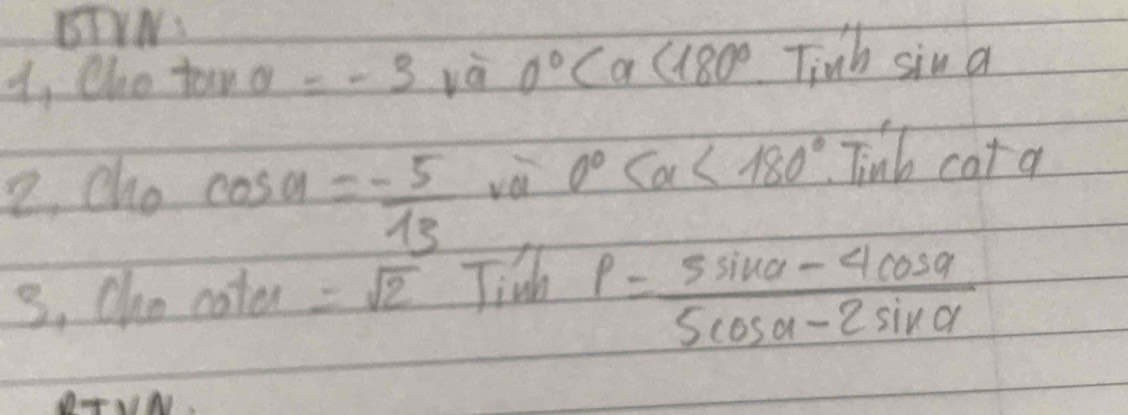 BTVN:
1, Cho tan a = -3 và 0° < a < 180°. Tính sin a
2, Cho cos a = -5/13 và 0° < a < 180°. Tính cot a
3, Cho cot a = √2 Tính P = (3 sin a - 4 cos a)/(5 cos a - 2 sin a)
BTVN: